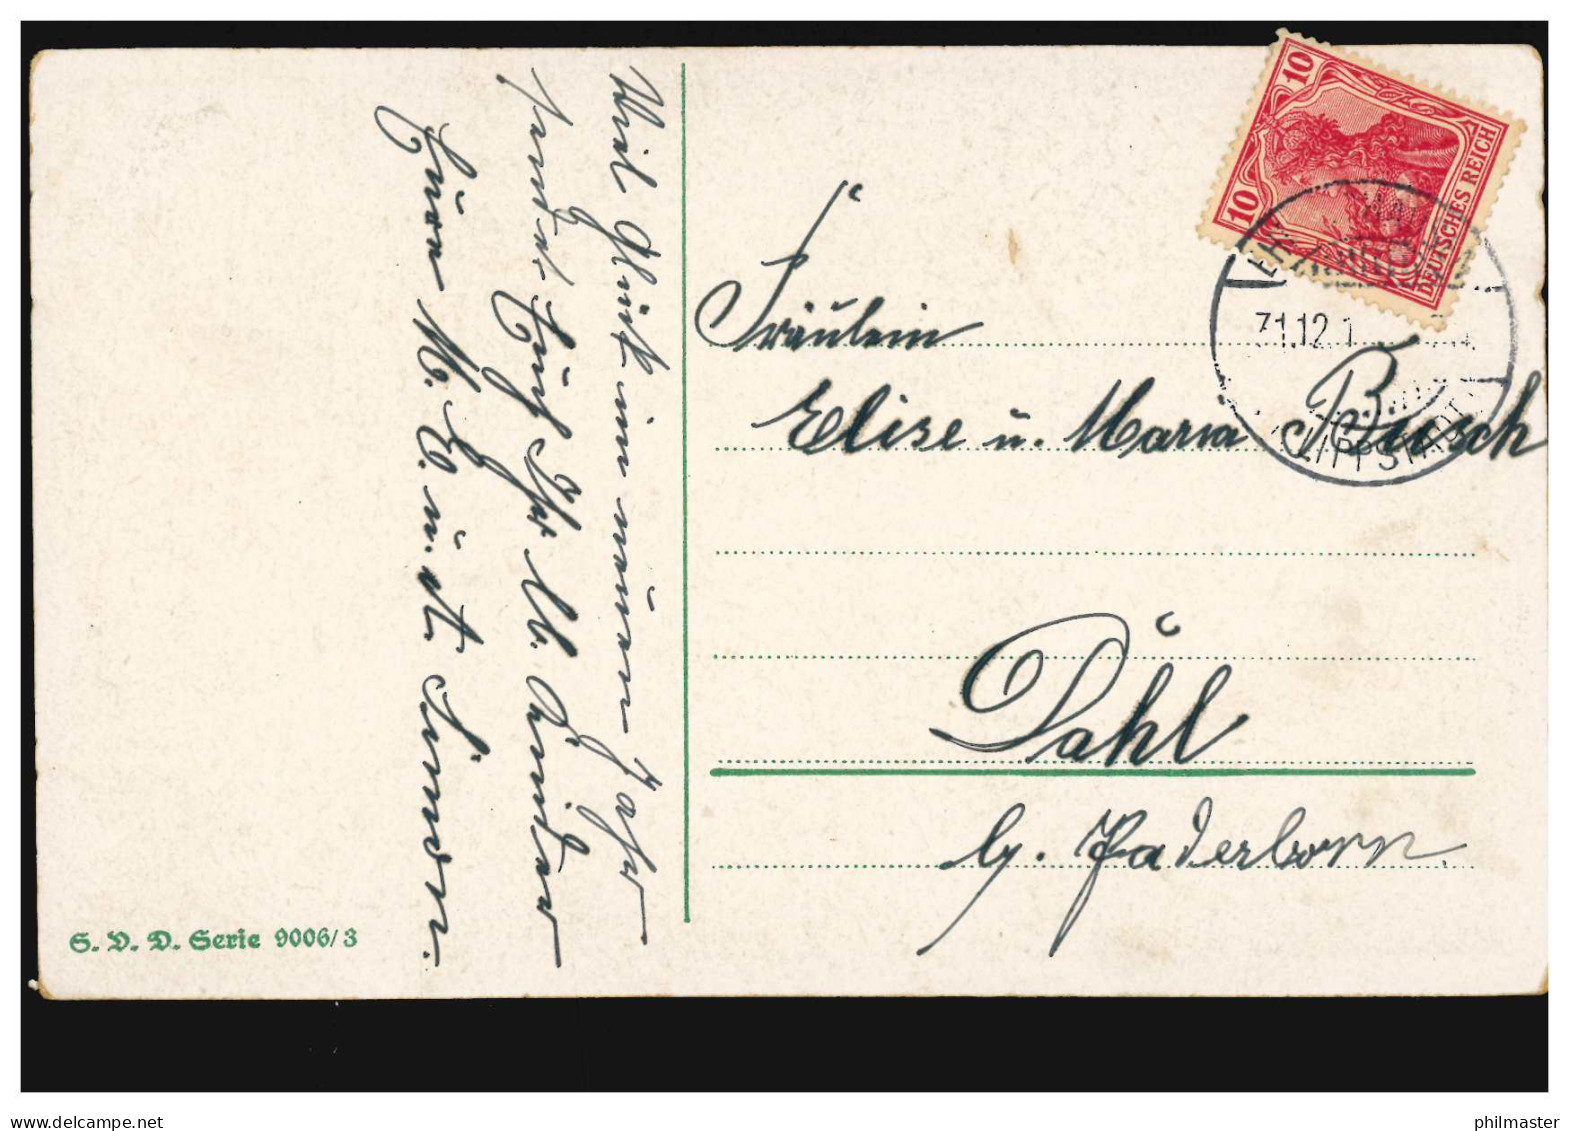 Viel Glück im neuen Jahr
sendet Euch Ihr lb. Kinder
Eure M. E. u. st. Simon.
S. V. D. Serie 9006/3
10 10
DEUTSCHES REICH
31.12.1
LIPPSTADT
Fräulein
Elise u. Maria Busch
Dahl
bg. Paderborn.
delcampe.net
philmaster